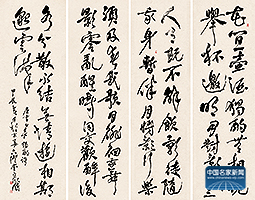 花間壹壺酒獨酌無相親
舉杯邀明月對影成三
人月既不解飲影徒隨
我身暫伴月將影行樂
須及春我歌月徘徊我舞
影零亂醒時同交歡醉後
各分散永結無情遊相期
邈雲漢
中国名家新闻